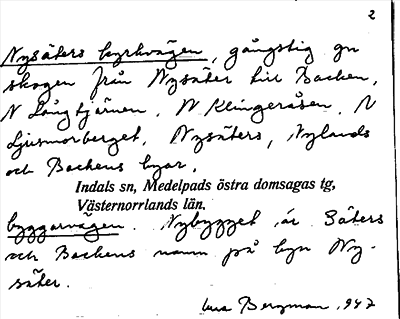 2
Nysäters byrkvägen, gångstig gn
skogen från Nysäter till Backen,
N Långtjärnen, NV Klingeråsen, N
Ljusmorberget, Nysäters, Nylands
och Backens byar.
Indals sn, Medelpads östra domsagas tg,
Västernorrlands län.
byggarvägen. Nybygget är Säters
och Backens namn på byn Ny-
säter.
Bergman, 1947